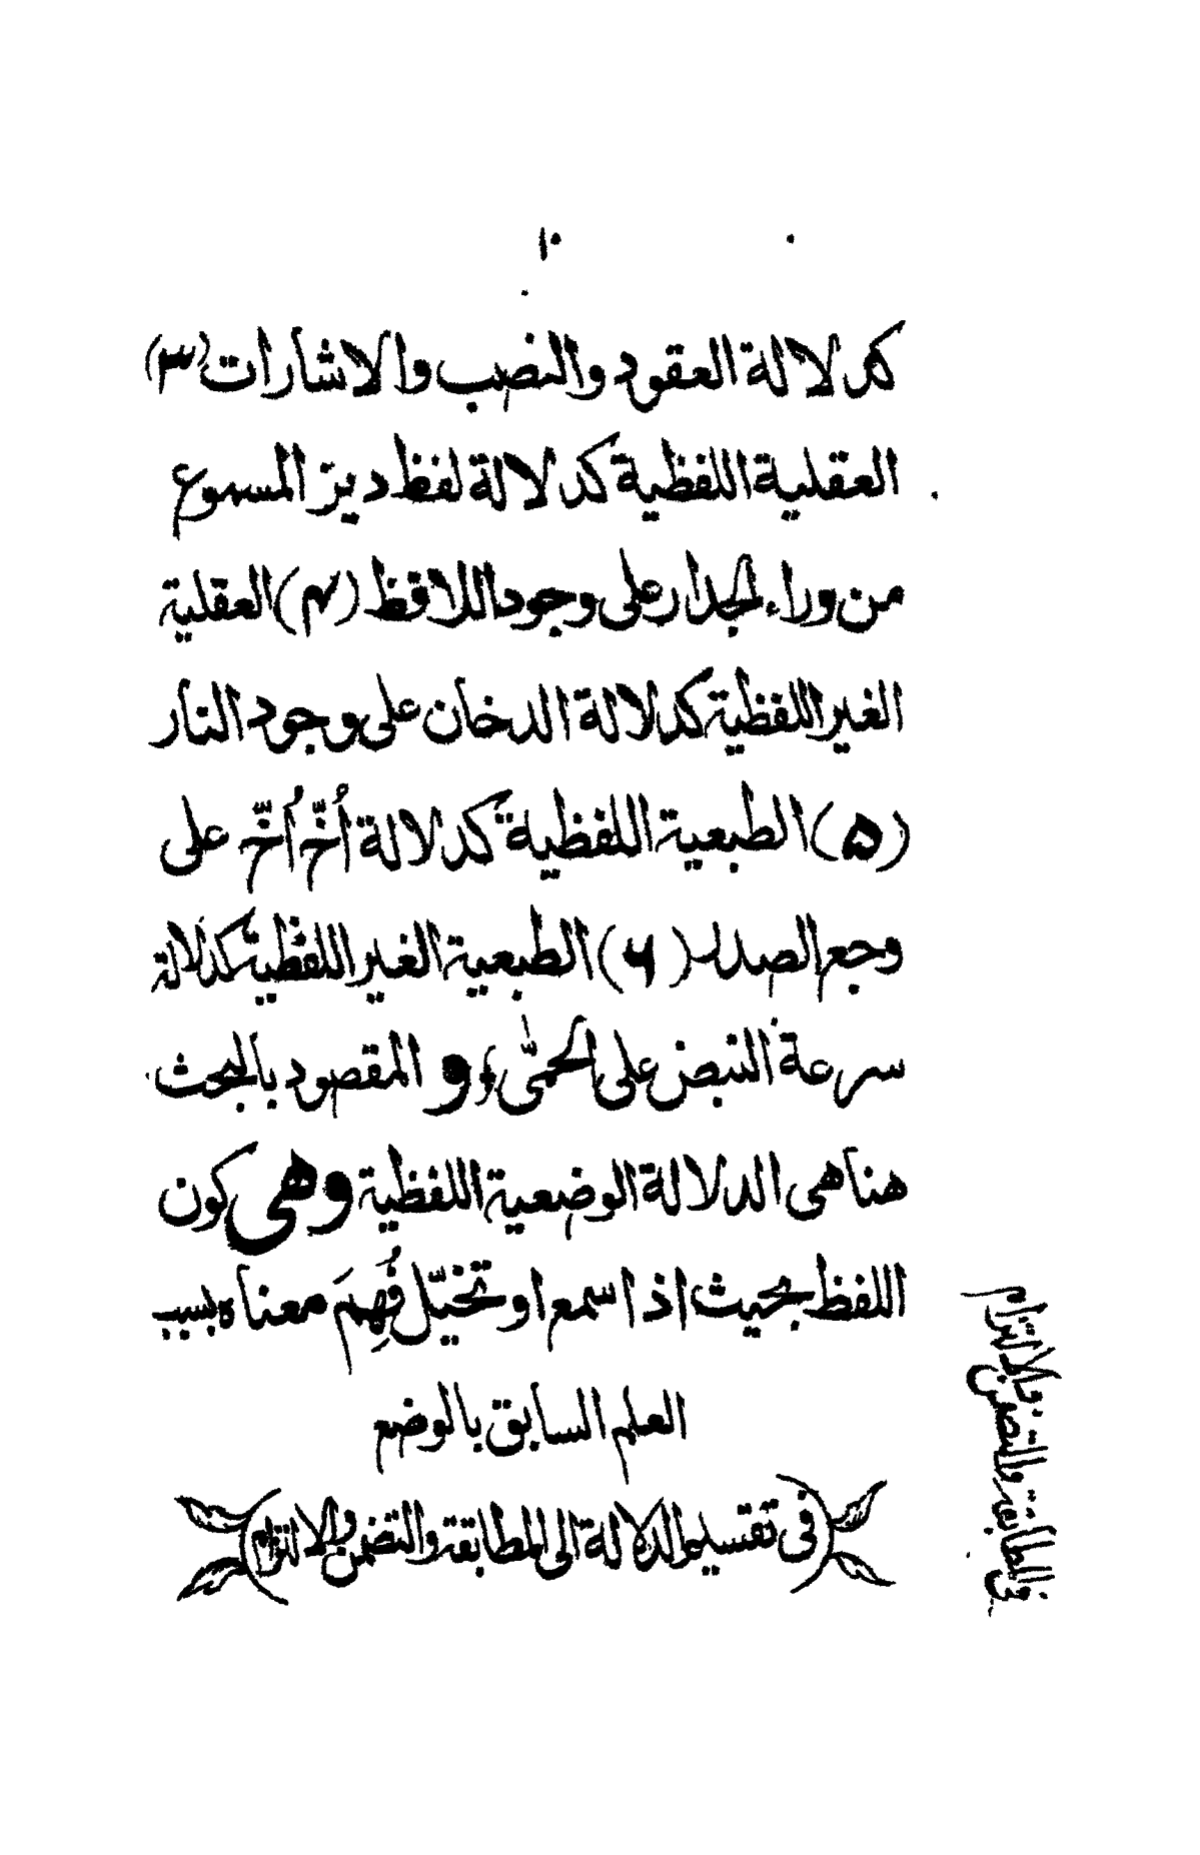 ١٠
كدلالة العقود والنصب والاشارات (٣)
العقلية اللفظية كدلالة لفظ ديز المسموع
من وراء الجدار على وجود اللافظ (۴) العقلية
الغير اللفظية كدلالة الدخان على وجود النار
(۵) الطبعية اللفظية كدلالة أُخّ أُخّ على
وجع الصدر (۶) الطبعية الغير اللفظية كدلالة
سرعة النبض على الحمّٰى ﴾ و المقصود بالبحث
هنا هى الدلالة الوضعية اللفظية وهى كون
اللفظ بحيث اذا سمع او تخيّل فُهِمَ معناه بسبب
العلم السابق بالوضع
(فى تقسيم الدلالة الى المطابقة والتضمن والالتزام)
فى المطابقة والتضمن والالتزام